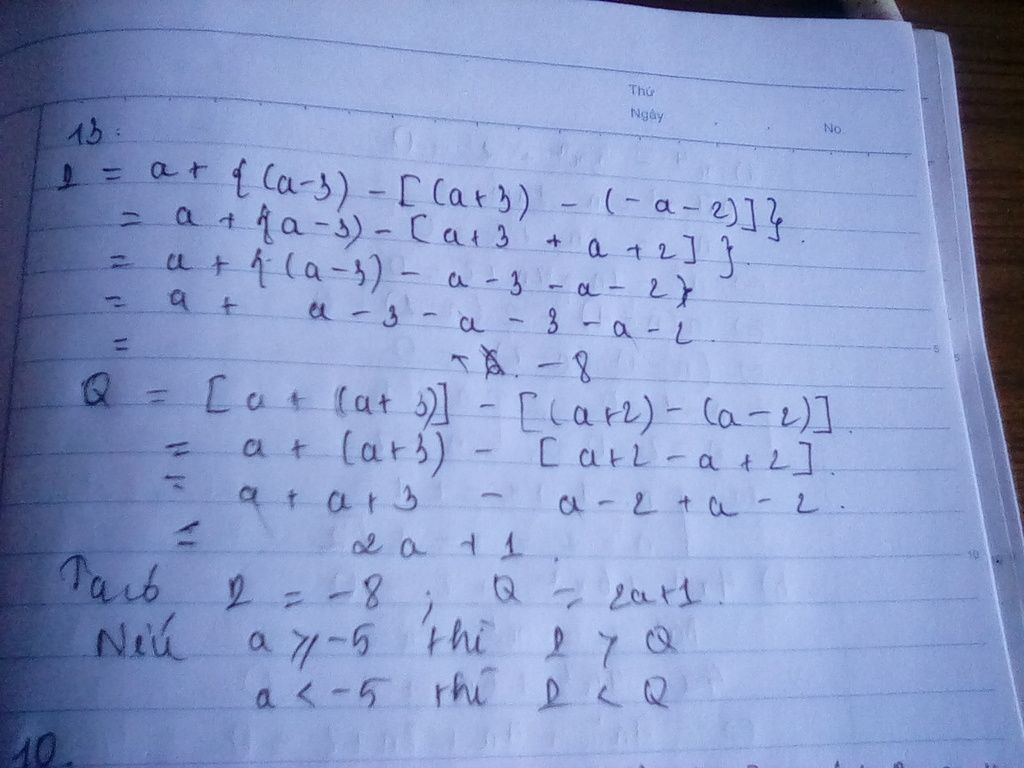 Thứ
Ngày
No
13:
P = a + {(a-3) - [(a+3) - (-a-2)]}.
= a + {(a-3) - [a+3 + a+2]}.
= a + {(a-3) - a-3-a-2}
= a + a-3-a-3-a-2.
= -8
Q = [a + (a+3)] - [(a+2) - (a-2)].
= a + (a+3) - [a+2-a+2].
= a + a+3 - a-2+a-2.
= 2a + 1.
Ta có P = -8 ; Q = 2a+1.
Nếu a ⩾ -5 thì P > Q
a < -5 thì P < Q
10.